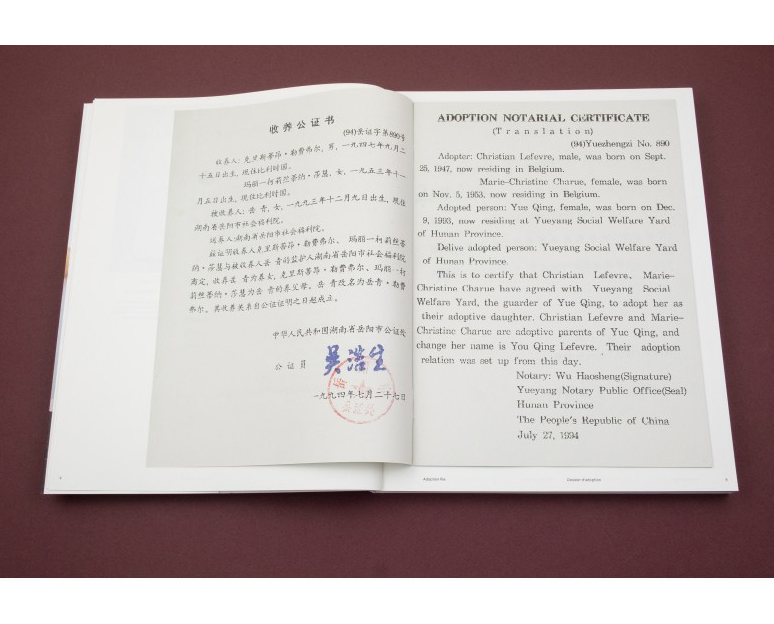 收养公证书
(94)岳证字第890号
收养人:克里斯蒂昂·勒费弗尔,男,一九四七年九月二
十五日出生,现住比利时国。
玛丽—柯莉兰蒂纳·莎慧,女,一九五三年十一
月五日出生,现住比利时国。
被收养人:岳 青,女,一九九三年十二月九日出生,现住
湖南省岳阳市社会福利院。
送养人:湖南省岳阳市社会福利院。
兹证明收养人克里斯蒂昂·勒费弗尔、玛丽—柯莉丝蒂
纳·莎慧与被收养人岳 青的监护人湖南省岳阳市社会福利院
商定,收养岳 青为养女,克里斯蒂昂·勒费弗尔、玛丽—柯
莉丝蒂纳·莎慧为岳 青的养父母。岳 青改名为岳青·勒费
弗尔。其收养关系自公证证明之日起成立。
中华人民共和国湖南省岳阳市公证处
公证员 吴浩生
一九九四年七月二十七日
4
ADOPTION NOTARIAL CERTIFICATE
(Translation)
(94)Yuezhengzi No. 890
Adopter: Christian Lefevre, male, was born on Sept.
25, 1947, now residing in Belgium.
Marie-Christine Charue, female, was born
on Nov. 5, 1953, now residing in Belgium.
Adopted person: Yue Qing, female, was born on Dec.
9, 1993, now residing at Yueyang Social Welfare Yard
of Hunan Province.
Delive adopted person: Yueyang Social Welfare Yard
of Hunan Province.
This is to certify that Christian Lefevre、 Marie-
Christine Charue have agreed with Yueyang Social
Welfare Yard, the guarder of Yue Qing, to adopt her as
their adoptive daughter. Christian Lefevre and Marie-
Christine Charue are adoptive parents of Yue Qing, and
change her name is You Qing Lefevre. Their adoption
relation was set up from this day.
Notary: Wu Haosheng(Signature)
Yueyang Notary Public Office(Seal)
Hunan Province
The People's Republic of China
July 27, 1994
Adoption file
Dossier d'adoption